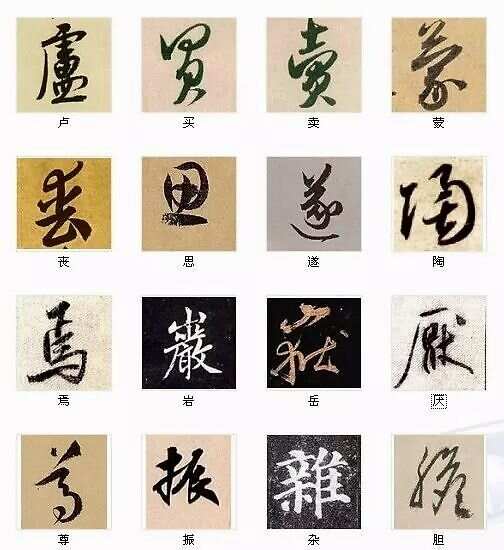 盧 買 賣 蒙
卢 买 卖 蒙
丧 思 遂 陶
丧 思 遂 陶
焉 巖 嶽 厭
焉 岩 岳 厌
尊 振 雜 膽
尊 振 杂 胆